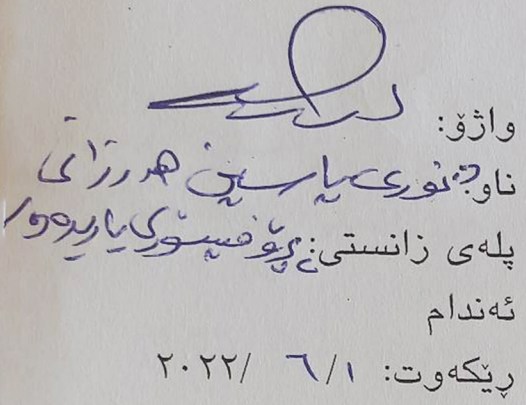 واژۆ:
ناو: د. نوری یاسین هەرزانی
پلەی زانستی: پرۆفیسۆری یاریدەدەر
ئەندام
ڕێکەوت: ٦/١ /٢٠٢٢